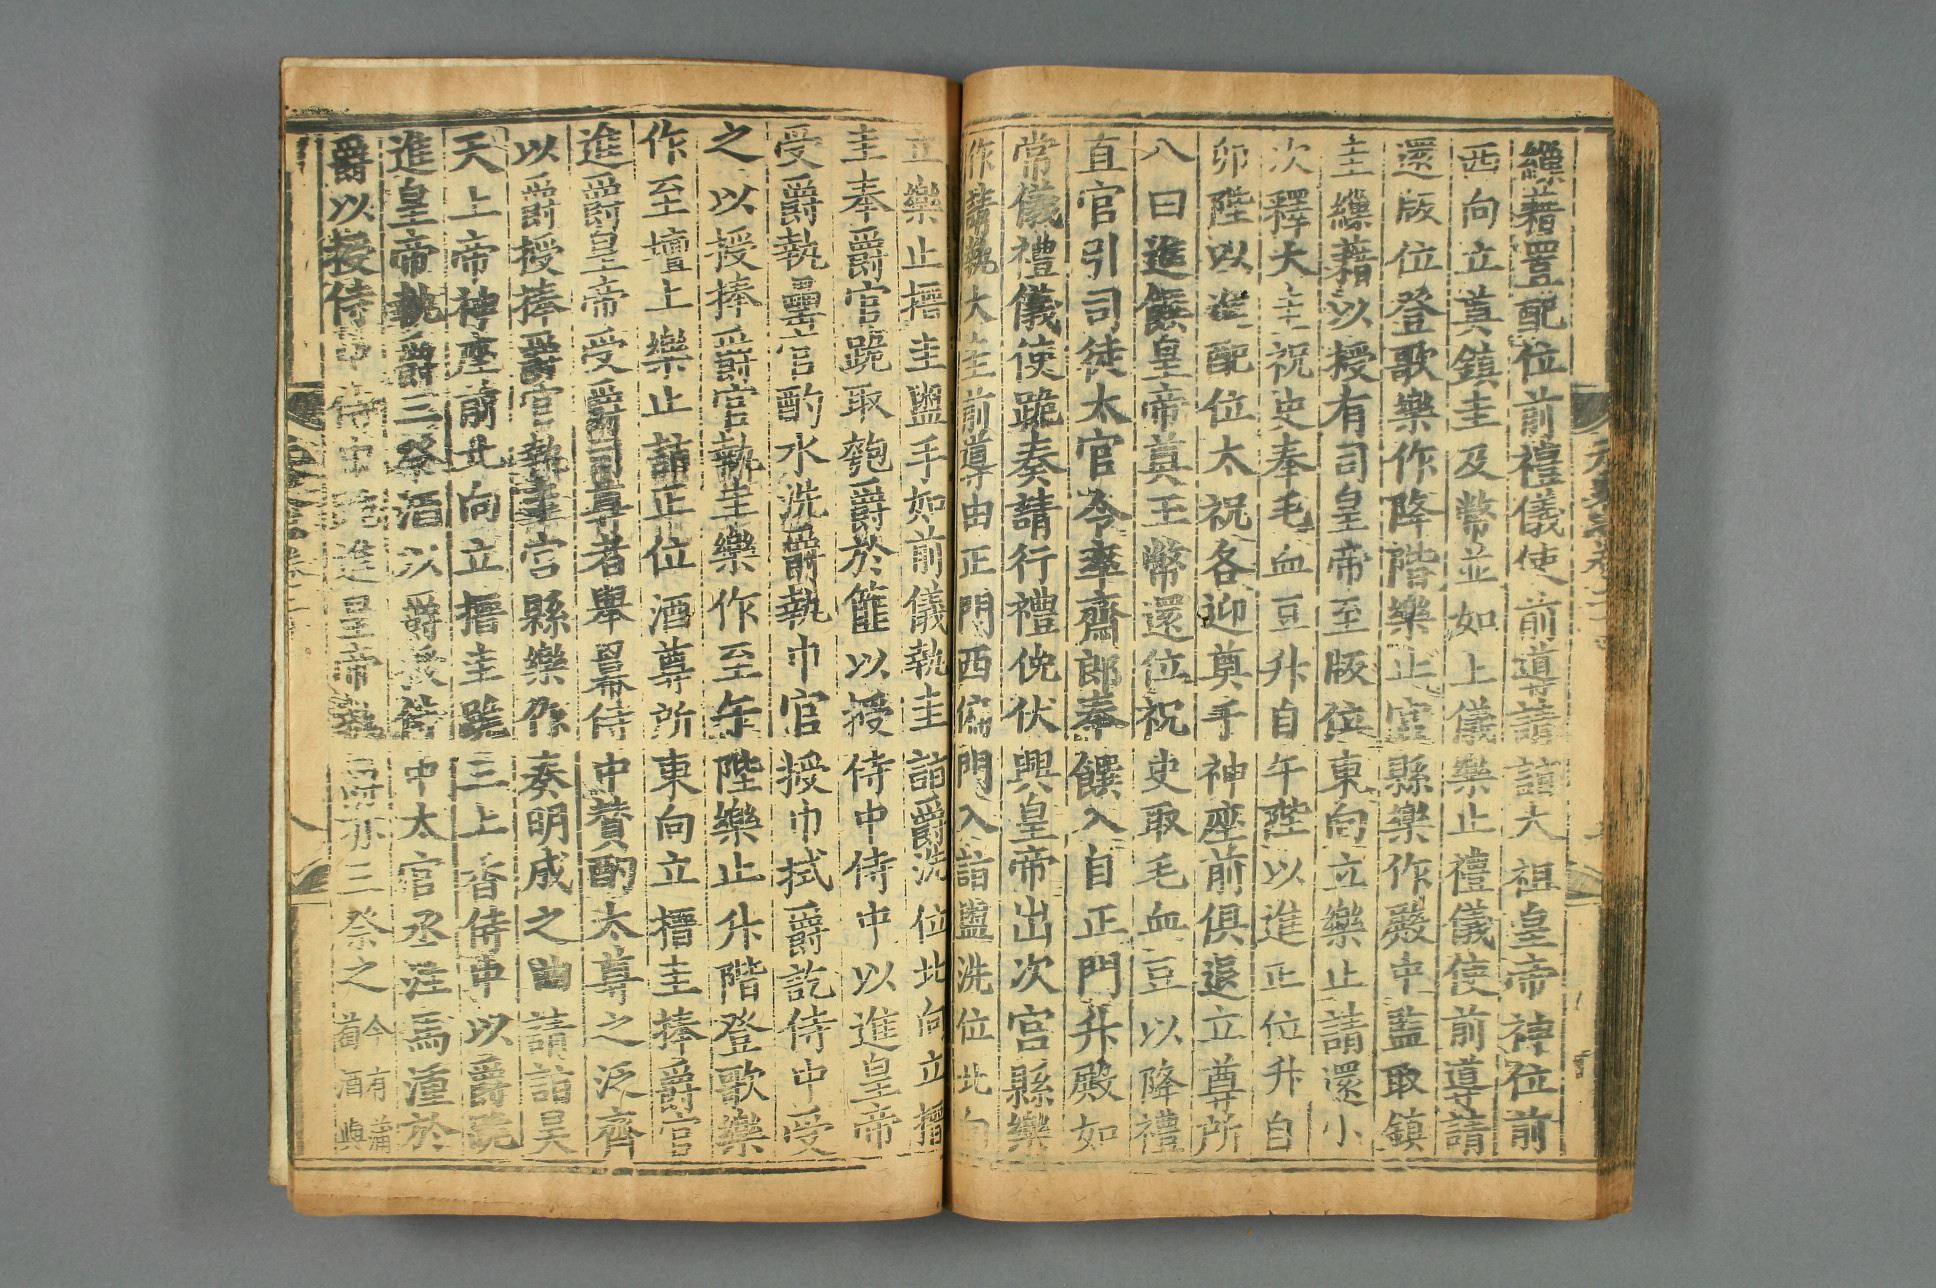 繅藉置配位前禮儀使前導請詣太祖皇帝神位前
西向立奠鎮圭及幣並如上儀樂止禮儀使前導請
還版位登歌樂作降階樂止宮縣樂作殿中監取鎮
圭繅藉以授有司皇帝至版位東向立樂止請還小
次釋大圭祝史奉毛血豆升自午陛以進正位升自
卯陛以進配位太祝各迎奠于神座前俱退立尊所
八曰進饌皇帝奠玉幣還位祝史取毛血豆以降禮
直官引司徒太官令率齋郎奉饌入自正門升殿如
常儀禮儀使跪奏請行禮俛伏興皇帝出次宮縣樂
作請執大圭前導由正門西偏門入詣盥洗位北向
立樂止搢圭盥手如前儀執圭詣爵洗位北向立搢
圭奉爵官跪取匏爵於篚以授侍中侍中以進皇帝
受爵執罍官酌水洗爵執巾官授巾拭爵訖侍中受
之以授捧爵官執圭樂作至午陛樂止升階登歌樂
作至壇上樂止詣正位酒尊所東向立搢圭捧爵官
進爵皇帝受爵司尊者舉冪侍中贊酌太尊之泛齊
以爵授捧爵官執圭宮縣樂作奏明成之曲請詣昊
天上帝神座前北向立搢圭跪三上香侍中以爵跪
進皇帝執爵三祭酒以爵授侍中太官丞注馬湩於
爵以授侍中侍中跪進皇帝執爵亦三祭之
今有蒲
萄酒與